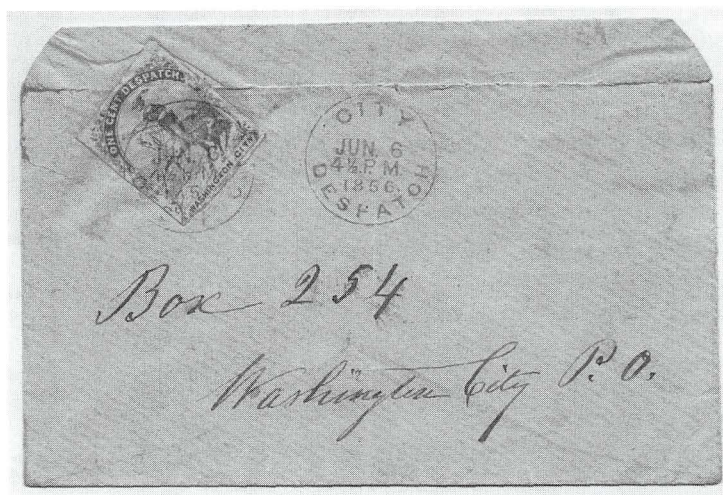 ONE CENT DESPATCH.
WASHINGTON CITY
CITY
JUN. 6
4½ P.M.
1856.
DESPATCH
Box 254
Washington City P. O.